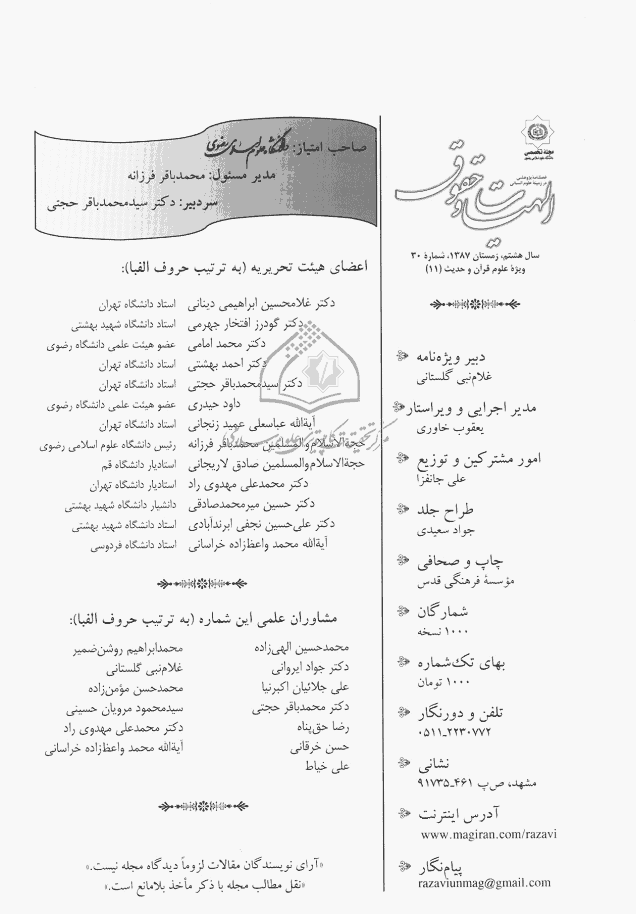 مجله تخصصی
دانشگاه علوم اسلامی رضوی
فصلنامه پژوهشی
در زمینهٔ علوم انسانی
الهیات و حقوق
سال هشتم، زمستان ۱۳۸۷، شمارهٔ ۳۰
ویژهٔ علوم قرآن و حدیث (۱۱)
دبیر ویژه‌نامه
غلام‌نبی گلستانی
مدیر اجرایی و ویراستار
یعقوب خاوری
امور مشترکین و توزیع
علی جانفزا
طراح جلد
جواد سعیدی
چاپ و صحافی
مؤسسهٔ فرهنگی قدس
شمارگان
۱۰۰۰ نسخه
بهای تک‌شماره
۱۰۰۰ تومان
تلفن و دورنگار
۰۵۱۱-۲۲۳۰۷۷۲
نشانی
مشهد، ص‌پ ۴۶۱-۹۱۷۳۵
آدرس اینترنت
www.magiran.com/razavi
پیام‌نگار
razaviunmag@gmail.com
صاحب امتیاز: دانشگاه علوم اسلامی رضوی
مدیر مسئول: محمدباقر فرزانه
سردبیر: دکتر سیدمحمدباقر حجتی
اعضای هیئت تحریریه (به ترتیب حروف الفبا):
دکتر غلامحسین ابراهیمی دینانی استاد دانشگاه تهران
دکتر گودرز افتخار جهرمی استاد دانشگاه شهید بهشتی
دکتر محمد امامی عضو هیئت علمی دانشگاه رضوی
دکتر احمد بهشتی استاد دانشگاه تهران
دکتر سیدمحمدباقر حجتی استاد دانشگاه تهران
داود حیدری عضو هیئت علمی دانشگاه رضوی
آیةالله عباسعلی عمید زنجانی استاد دانشگاه تهران
حجةالاسلام والمسلمین محمدباقر فرزانه رئیس دانشگاه علوم اسلامی رضوی
حجةالاسلام والمسلمین صادق لاریجانی استادیار دانشگاه قم
دکتر محمدعلی مهدوی راد استادیار دانشگاه تهران
دکتر حسین میرمحمدصادقی دانشیار دانشگاه شهید بهشتی
دکتر علی‌حسین نجفی ابرندآبادی استاد دانشگاه شهید بهشتی
آیةالله محمد واعظ‌زاده خراسانی استاد دانشگاه فردوسی
مشاوران علمی این شماره (به ترتیب حروف الفبا):
محمدحسین الهی‌زاده محمدابراهیم روشن‌ضمیر
دکتر جواد ایروانی غلام‌نبی گلستانی
علی جلائیان اکبرنیا محمدحسن مؤمن‌زاده
دکتر محمدباقر حجتی سیدمحمود مرویان حسینی
رضا حق‌پناه دکتر محمدعلی مهدوی راد
حسن خرقانی آیةالله محمد واعظ‌زاده خراسانی
علی خیاط
«آرای نویسندگان مقالات لزوماً دیدگاه مجله نیست.»
«نقل مطالب مجله با ذکر مأخذ بلامانع است.»